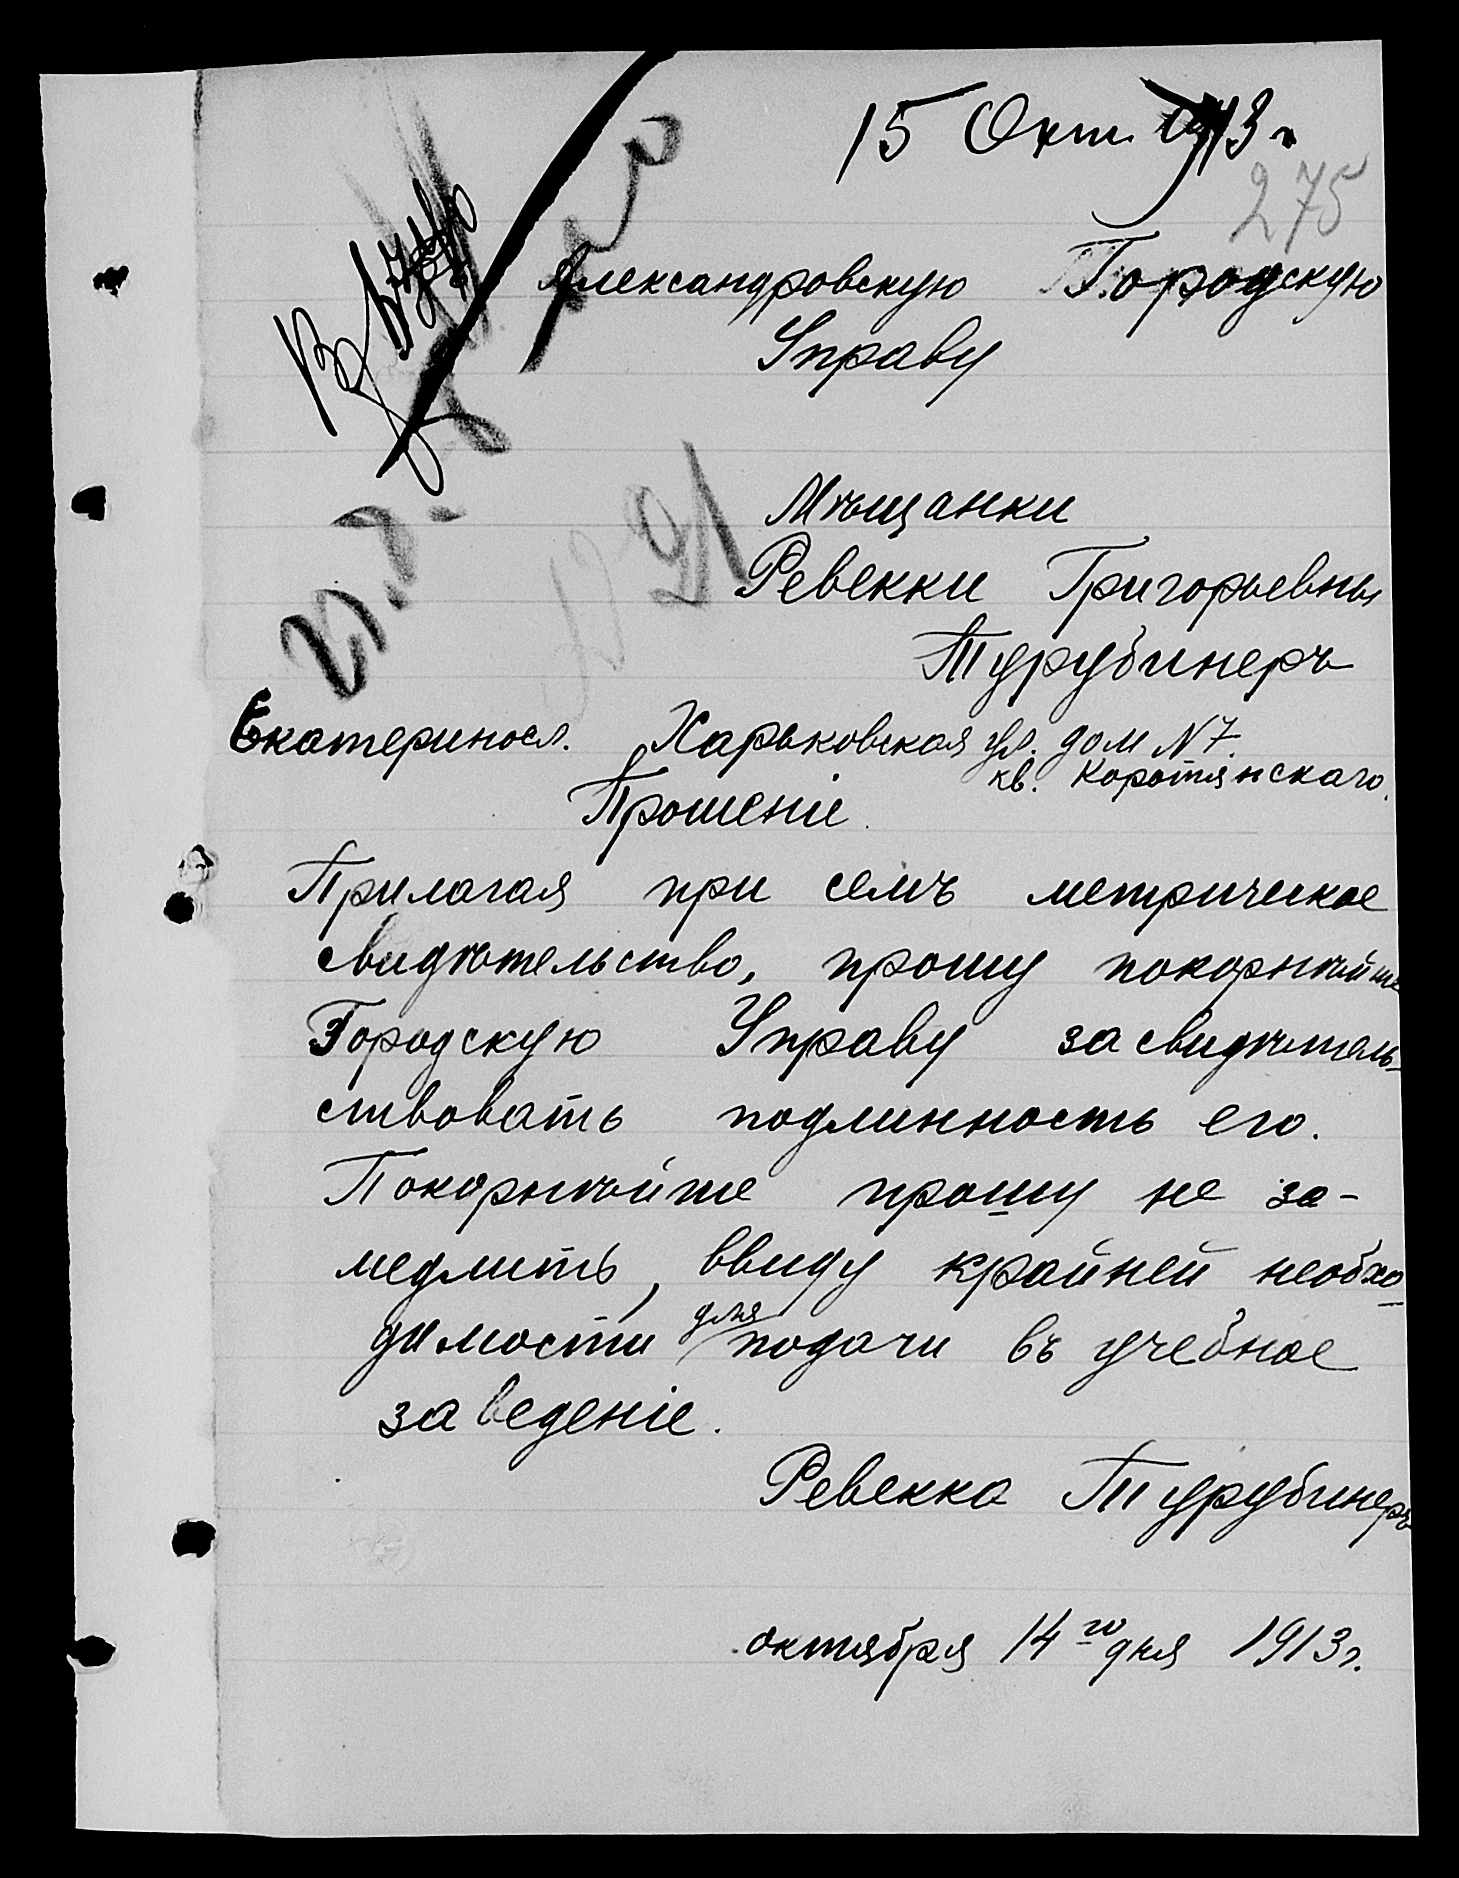 15 Окт. 1913 г.
275
Александровскую Городскую
Управу
Мѣщанки
Ревекки Григорьевны
Турубинеръ
Екатериносл. Харьковская ул. дом N 7.
кв. Коротянскаго.
Прошеніе.
Прилагая при семъ метрическое
свидѣтельство, прошу покорнѣйше
Городскую Управу засвидѣтель-
ствовать подлинность его.
Покорнѣйше прошу не за-
медлить, ввиду крайней необхо-
димости для подачи въ учебное
заведеніе.
Ревекка Турубинеръ
октября 14го дня 1913 г.